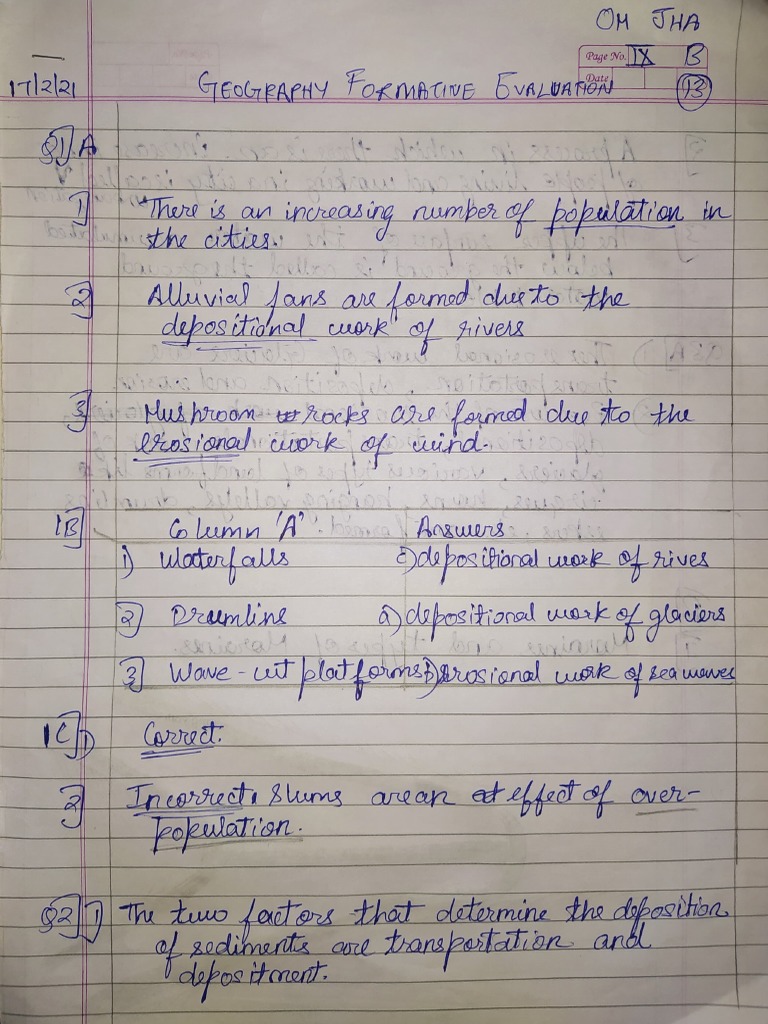 OM JHA
Page No. IX B
Date 13
17/2/21 GEOGRAPHY FORMATIVE EVALUATION
Q1] A
1] There is an increasing number of population in
the cities.
2] Alluvial fans are formed due to the
depositional work of rivers
3] Mushroom rocks are formed due to the
erosional work of wind.
1B] Column 'A' Answers
1) Waterfalls c) depositional work of rives
2) Drumlins a) depositional work of glaciers
3] Wave-cut platforms b) erosional work of sea waves
1C] 1) Correct.
2] Incorrect. Slums are an effect of over-
population.
Q2] 1] The two factors that determine the deposition
of sediments are transportation and
depositment.